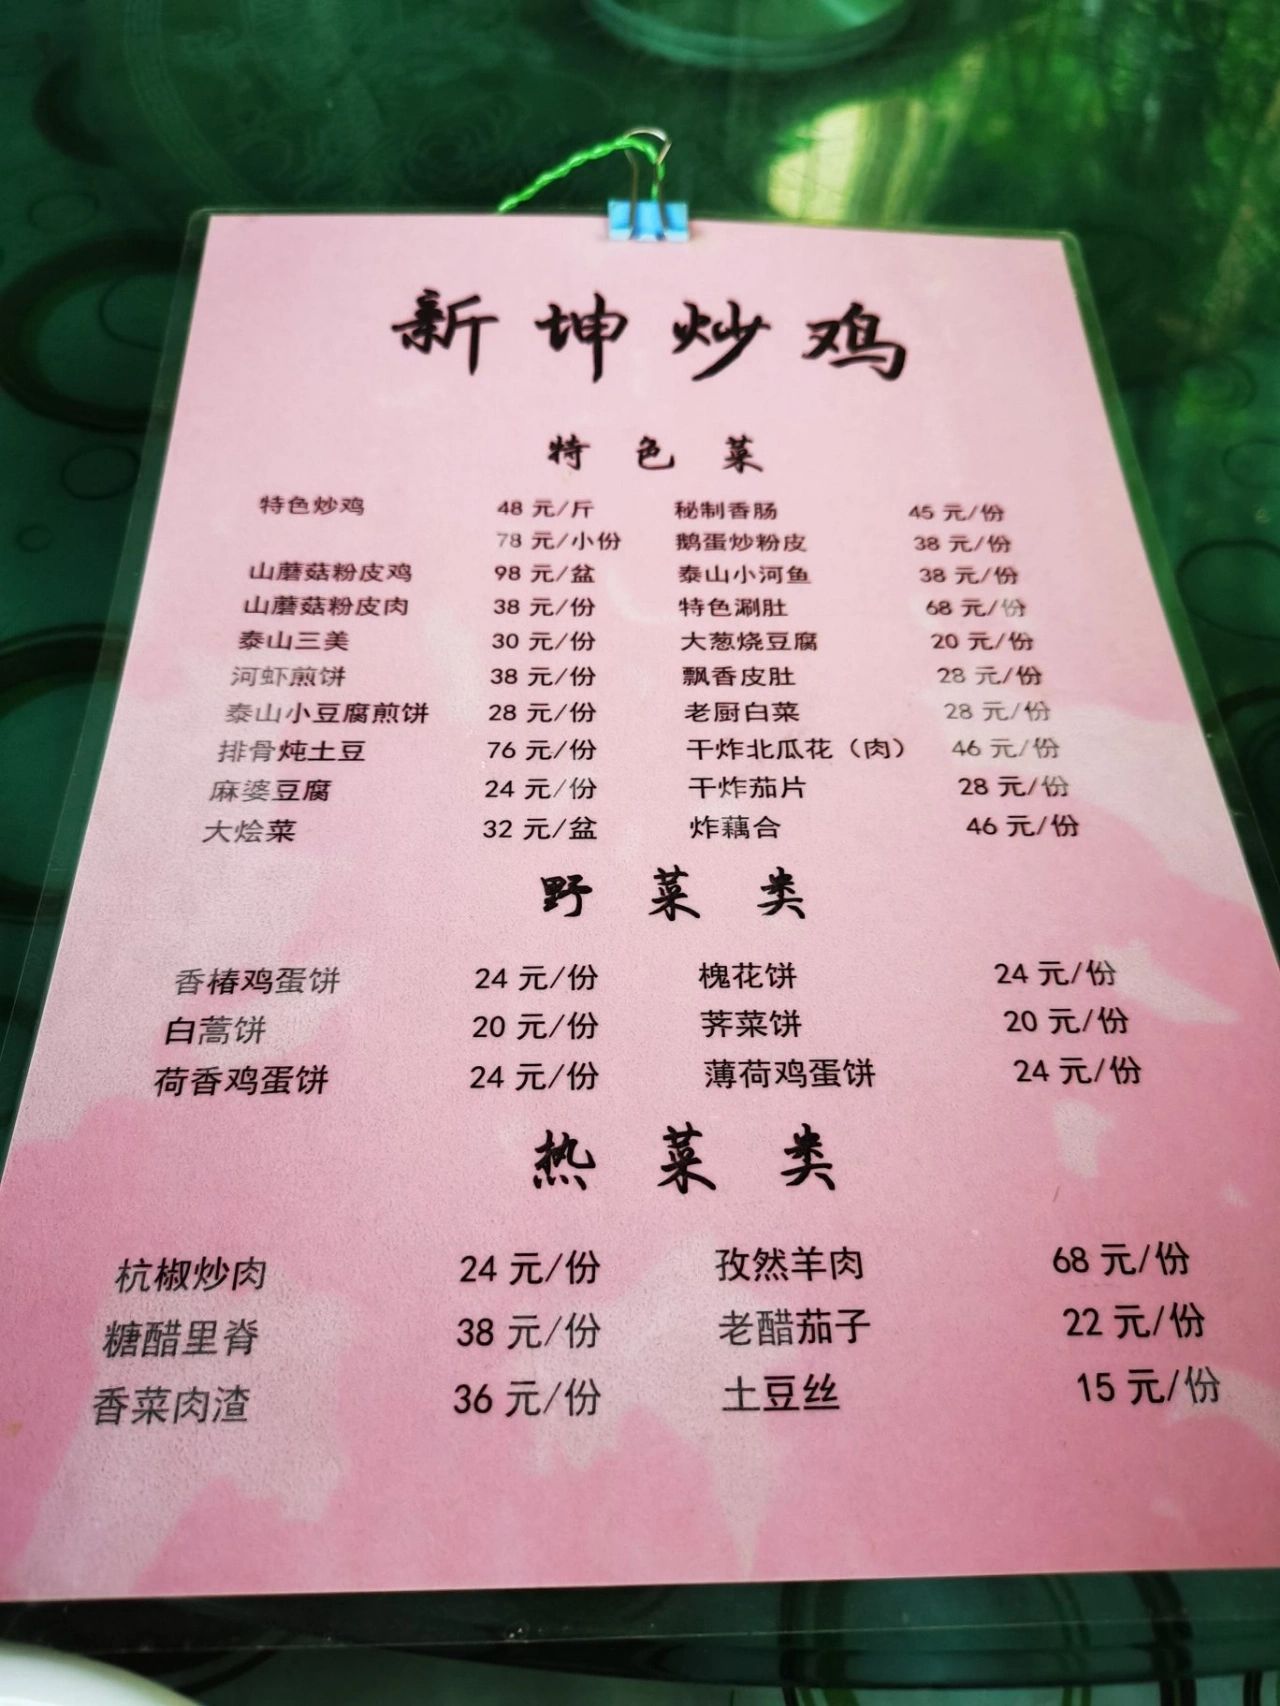 新坤炒鸡
特色菜
特色炒鸡 48 元/斤 秘制香肠 45 元/份
78 元/小份 鹅蛋炒粉皮 38 元/份
山蘑菇粉皮鸡 98 元/盆 泰山小河鱼 38 元/份
山蘑菇粉皮肉 38 元/份 特色涮肚 68 元/份
泰山三美 30 元/份 大葱烧豆腐 20 元/份
河虾煎饼 38 元/份 飘香皮肚 28 元/份
泰山小豆腐煎饼 28 元/份 老厨白菜 28 元/份
排骨炖土豆 76 元/份 干炸北瓜花（肉） 46 元/份
麻婆豆腐 24 元/份 干炸茄片 28 元/份
大烩菜 32 元/盆 炸藕合 46 元/份
野菜类
香椿鸡蛋饼 24 元/份 槐花饼 24 元/份
白蒿饼 20 元/份 荠菜饼 20 元/份
荷香鸡蛋饼 24 元/份 薄荷鸡蛋饼 24 元/份
热菜类
杭椒炒肉 24 元/份 孜然羊肉 68 元/份
糖醋里脊 38 元/份 老醋茄子 22 元/份
香菜肉渣 36 元/份 土豆丝 15 元/份